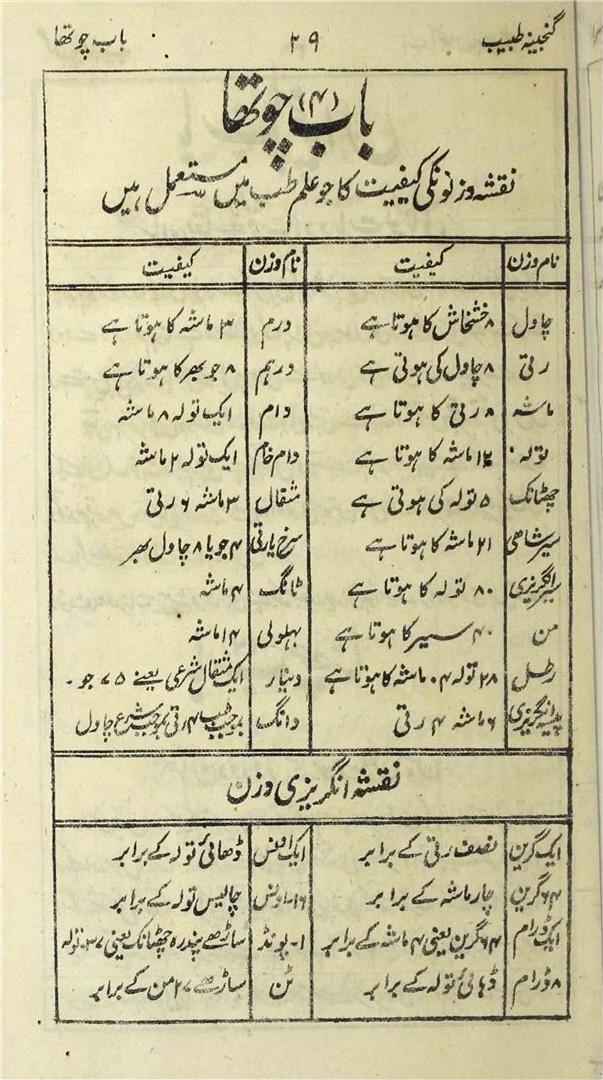 گنجینہ طبیب ۲۹ باب چوتھا
باب (۴) چوتھا
نقشہ وزنونکی کیفیت کا جو علم طب میں مستعمل ہیں
نام وزن کیفیت نام وزن کیفیت
چاول ۸ خشخاش کا ہوتا ہے درم ۳ ماشہ کا ہوتا ہے
رتی ۸ چاول کی ہوتی ہے درہم ۸ جو بھر کا ہوتا ہے
ماشہ ۸ رتی کا ہوتا ہے دام ایک تولہ ۸ ماشہ
تولہ ۱۲ ماشہ کا ہوتا ہے دام خام ایک تولہ ۲ ماشہ
چھٹانک ۵ تولہ کی ہوتی ہے مثقال ۳ ماشہ ۶ رتی
سیر شاہی ۲۱ ماشہ کا ہوتا ہے سرخ یا رتی ۴ جو یا ۸ چاول بھر
سیر انگریزی ۸۰ تولہ کا ہوتا ہے ٹانگ ۴ ماشہ
من ۴۰ سیر کا ہوتا ہے بہلولی ۱۴ ماشہ
رطل ۲۸ تولہ ۴ ماشہ کا ہوتا ہے دینار ایک مثقال شرعی یعنے ۷۵ جو۔
پیسہ انگریزی ۶ ماشہ ۴ رتی دانگ بموجب طب ۴ رتی بموجب شرع چاول
نقشہ انگریزی وزن
ایک گرین نصف رتی کے برابر ایک اونس ڈھائی تولہ کے برابر
۶۴ گرین چار ماشہ کے برابر ۱۶۔ اونس چالیس تولہ کے برابر
ایک ڈرام ۶۴ گرین یعنی ۴ ماشہ کے برابر ۱۔ پونڈ ساڑھے پندرہ چھٹانک یعنی ۳۷۔ تولہ
۸ ڈرام ڈہائی تولہ کے برابر ٹن ساڑھے ۲۷ من کے برابر